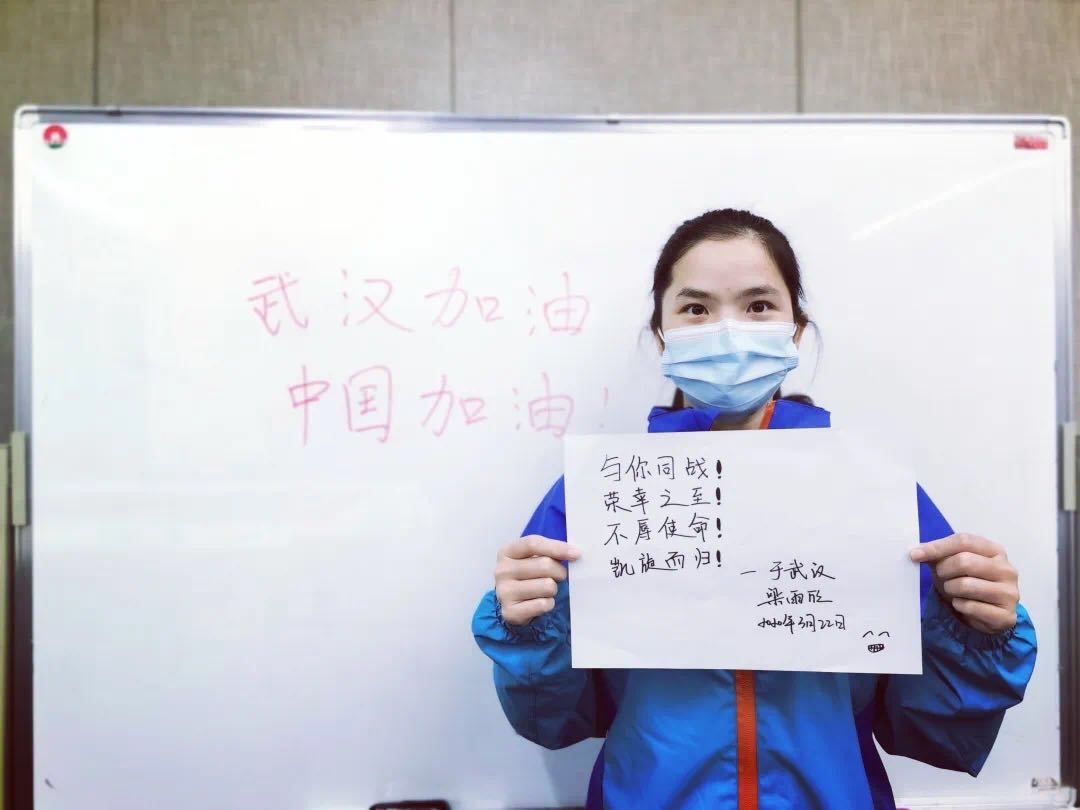 武汉加油
中国加油!
与你同战!
荣幸之至!
不辱使命!
凯旋而归!
—于武汉
梁雨欣
2020年3月22日